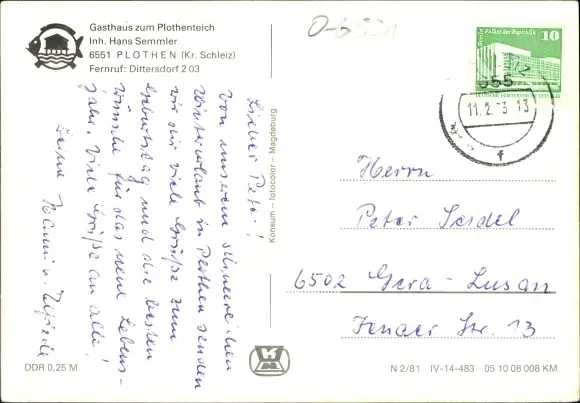 Gasthaus zum Plothenteich
Inh. Hans Semmler
6551 PLOTHEN (Kr. Schleiz)
Fernruf: Dittersdorf 2 03
O-6551
Berlin Palast der Republik 10
DEUTSCHE DEMOKRATISCHE REPUBLIK
655
11.2. 3 13
f
Lieber Peter!
Von unserem
Winterurlaub in Plothen senden
wir dir viele Grüße zum
Geburtstag und die besten
Wünsche für das neue Lebens-
jahr. Viele Grüße an alle!
Deine
Konsum - fotocolor - Magdeburg
Herrn
Peter Seidel
6502 Gera - Lusan
Jenaer Str. 13
DDR 0,25 M
N 2/81 IV-14-483 05 10 08 008 KM